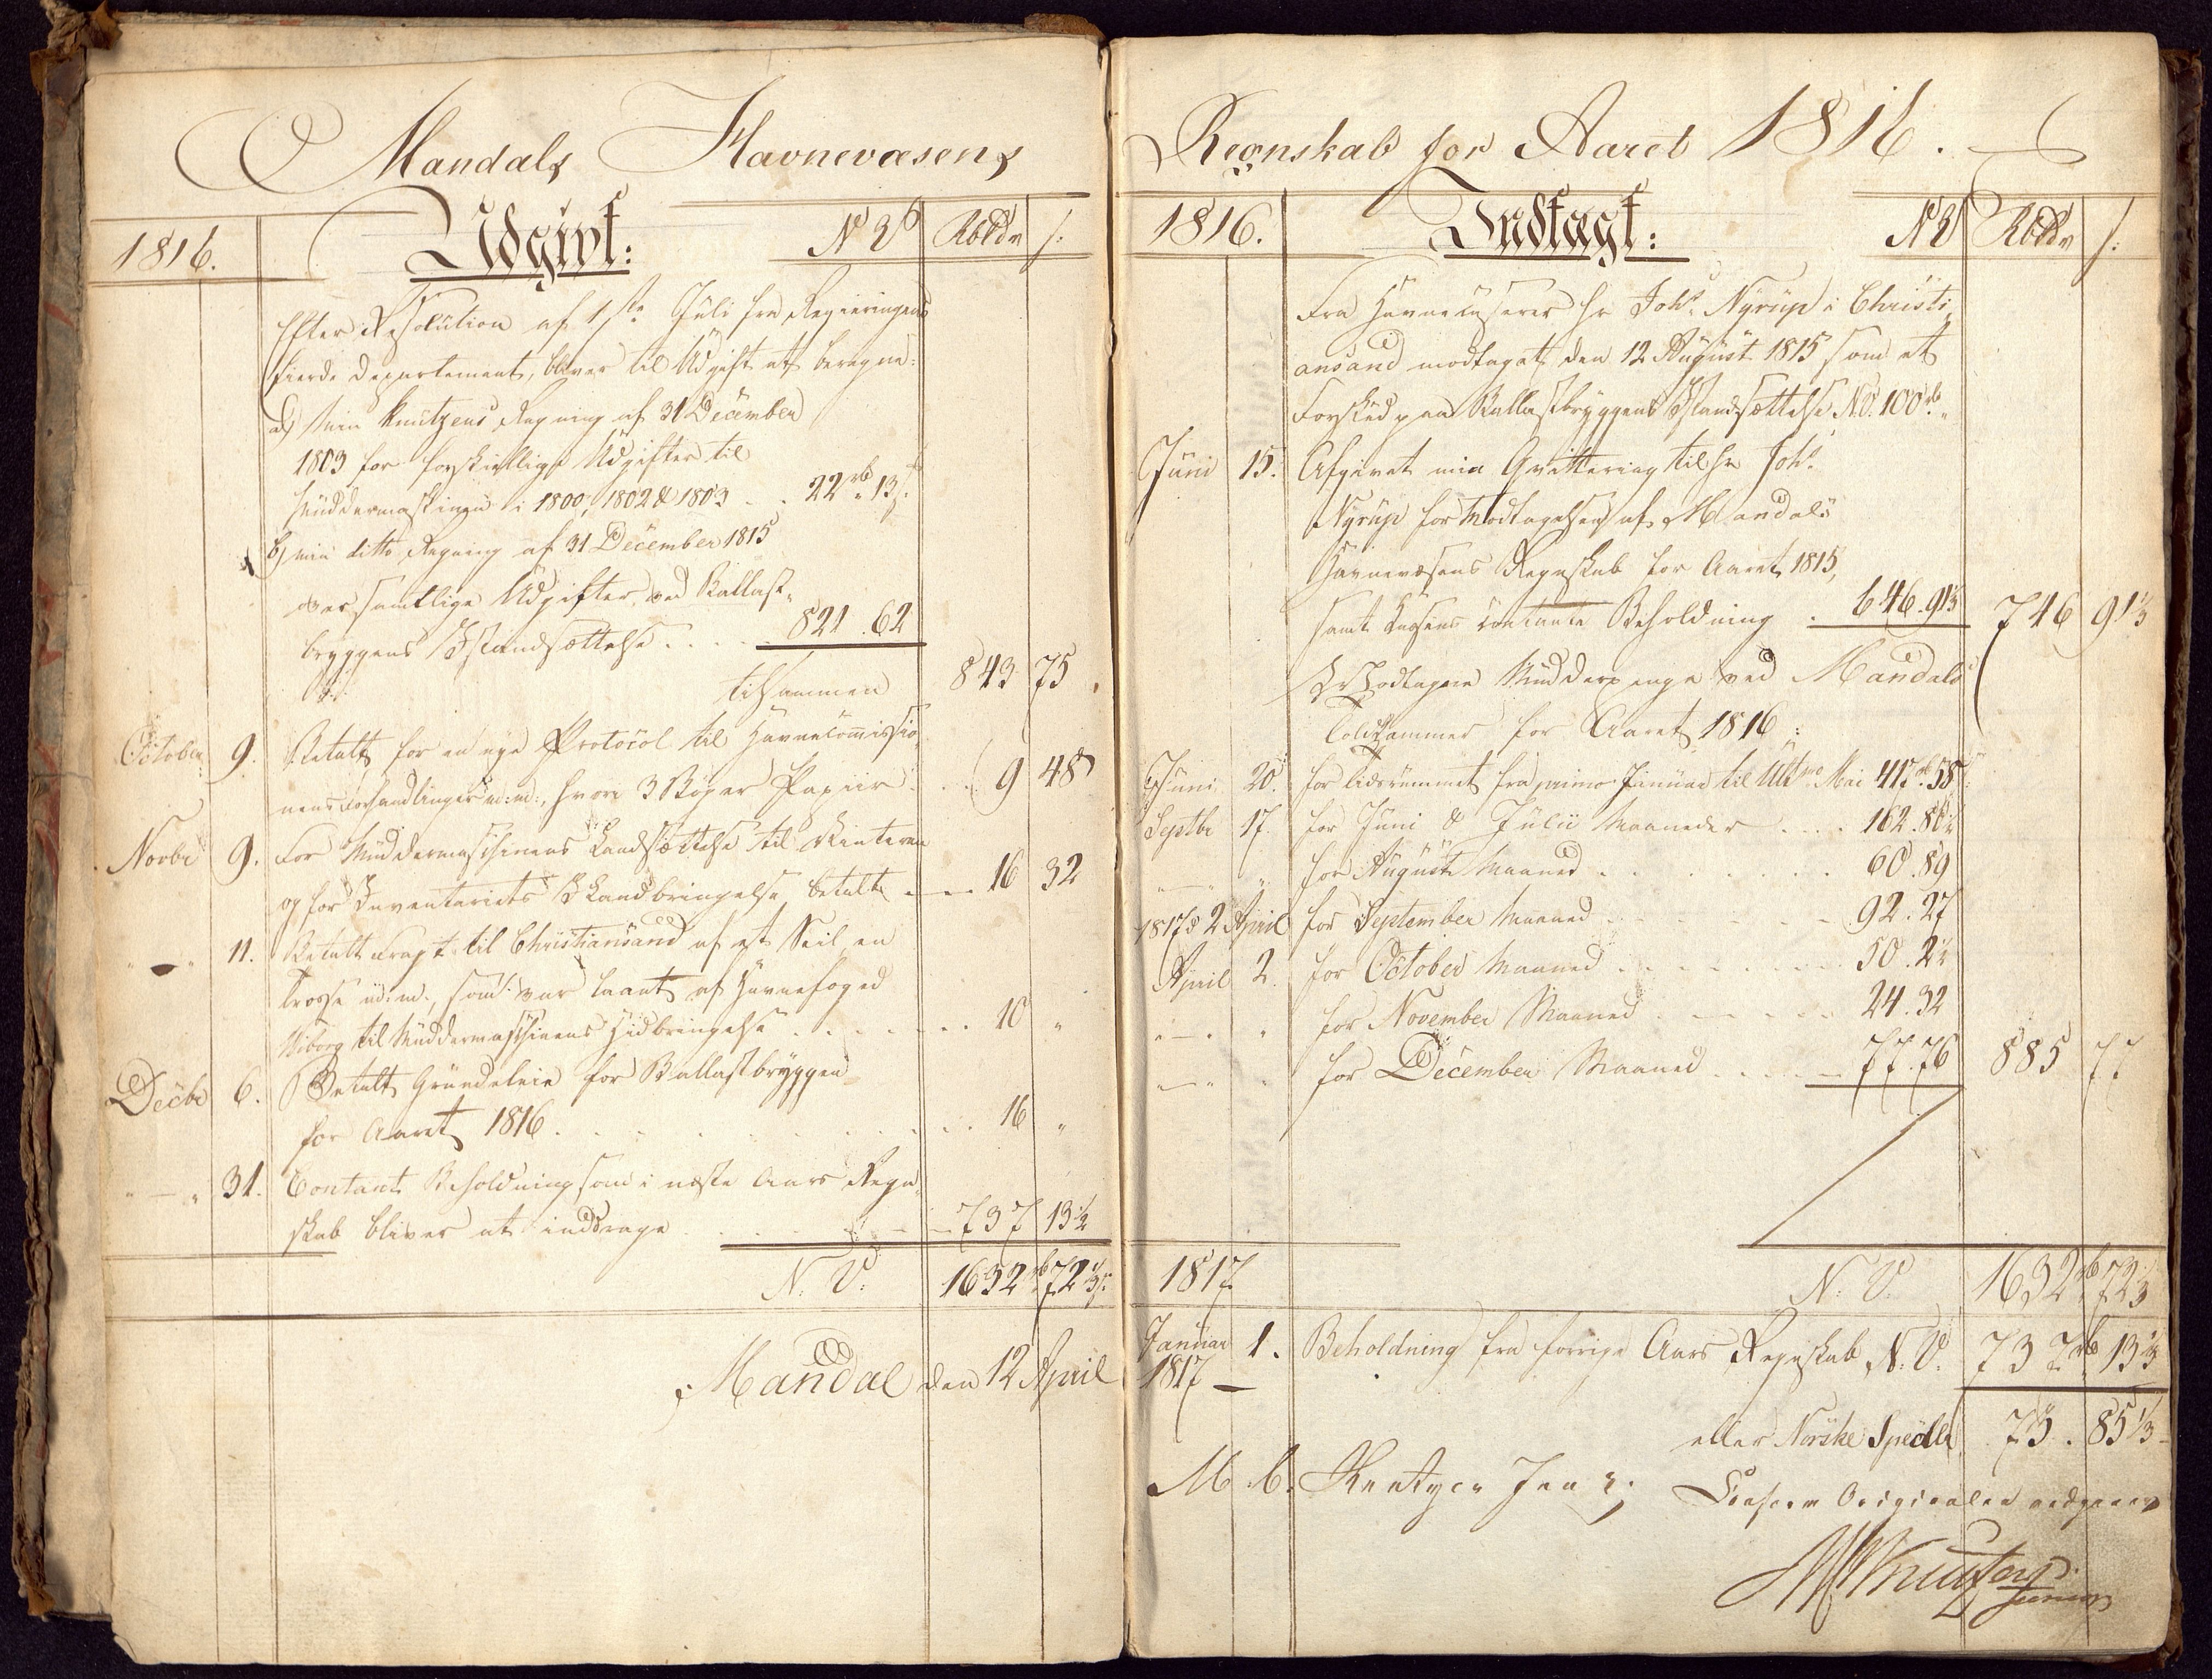 Mandals Havnevæsens
1816. Udgivt: N V Rbdlr s:
Efter Resolution af 1ste Juli fra Regieringens
fierde Departement, bliver til Udgift at beregne:
a) Min Knutzens Regning af 31 December
1803 for forskiellige Udgifter til
Muddermaskinen i 1800, 1802 & 1803 . . 22 rb 13 s.
b) min ditto Regning af 31 December 1815
over samtlige Udgifter ved Ballast-
bryggens Istandsættelse . . . . 821 . 62
tilsammen 843 75
October 9. Betalt for en nye Protocol til Havnecommissio-
nens Forhandlinger m: m:, hvori 3 Bøger Papiir . . 9 48
Novbr 9. For Muddermaschinens Landsættelse til Vinteren
og for Inventariets Ilandbringelse betalt 16 32
" — " 11. Betalt Fragt til Christiansand af et Seil, en
Trosse m: m:, som var laant af Havnefoged
Wiborg til Muddermaschinens Hidbringelse . . . . 10 "
Decbr 6. Betalt Grundeleie for Ballastbryggen
for Aaret 1816 . . . . . . 16 "
" — " 31. Contant Beholdning som i næste Aars Regn-
skab bliver at inddrage 737 13½
N. V. 1632 rb 72⅓ s.
Mandal den 12 April
Regnskab for Aaret 1816.
1816. Indtægt: N V Rbdlr s:
Fra Havnecasserer Hr Johs Nyrup i Christi-
ansand modtaget den 12 August 1815 som et
Forskud paa Ballastbryggens Istandsættelse N.V. 100 rb "
Juni 15. Afgivet min Qvittering til Hr Johs
Nyrup for Modtagelsen af Mandals
Havnevæsens Regnskab for Aaret 1815,
samt Kassens contante Beholdning . 646 . 91⅓ 746 91⅓
Modtagne Mudderpenge ved Mandals
Toldkammer for Aaret 1816 :
Juni 20. for Tidsrummet fra primo Januar til Ultmo Mai 417 rb 58
Septbr 17. for Juni & Julii Maaneder . . . 162 . 80½
" — " " for August Maaned . . . . . . 60 . 89
1817 d 2 April for September Maaned . . . . . . 92 . 27
April 2. for October Maaned . . . . . . 50 . 2½
" — " " for November Maaned . . . . . 24 . 32
" — " " for December Maaned . . . . . 77 . 76 885 77
1817 N. V. 1632 rb 72⅓
Januar 1. Beholdning fra forrige Aars Regnskab N. V. 737 rb 13⅓
1817 —
eller Norske Specdlr 73 . 85⅓
M. C. Knutzen Jun r:
Conform Originalen
M C Knutzen
Junior